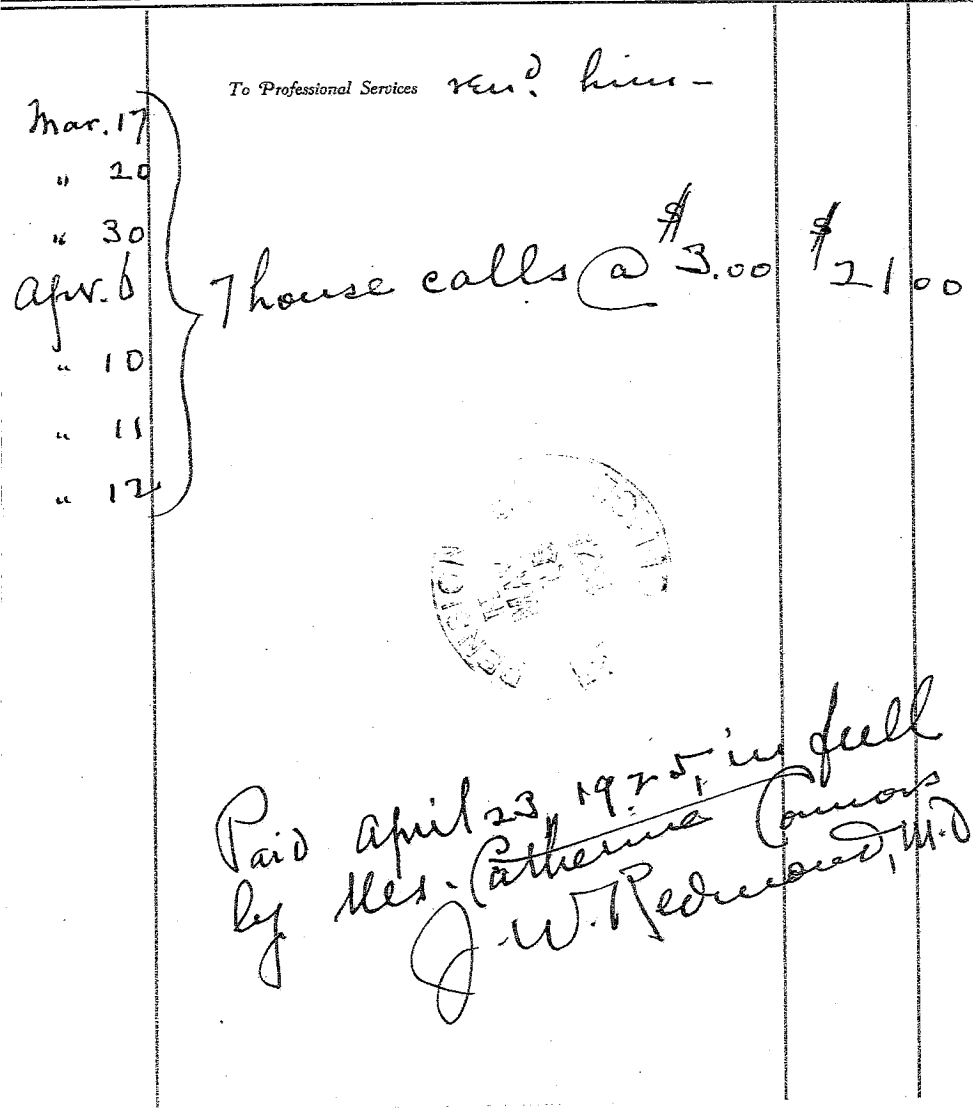 To Professional Services ren.d him -
Mar. 17
" 20
" 30
Apr. 6
7 house calls @ $3.00 $21 00
" 10
" 11
" 12
PENSION OFFICE
Paid April 23, 1925, in full
by Mrs. Catherine Connors
J. W. Redmond, M.D